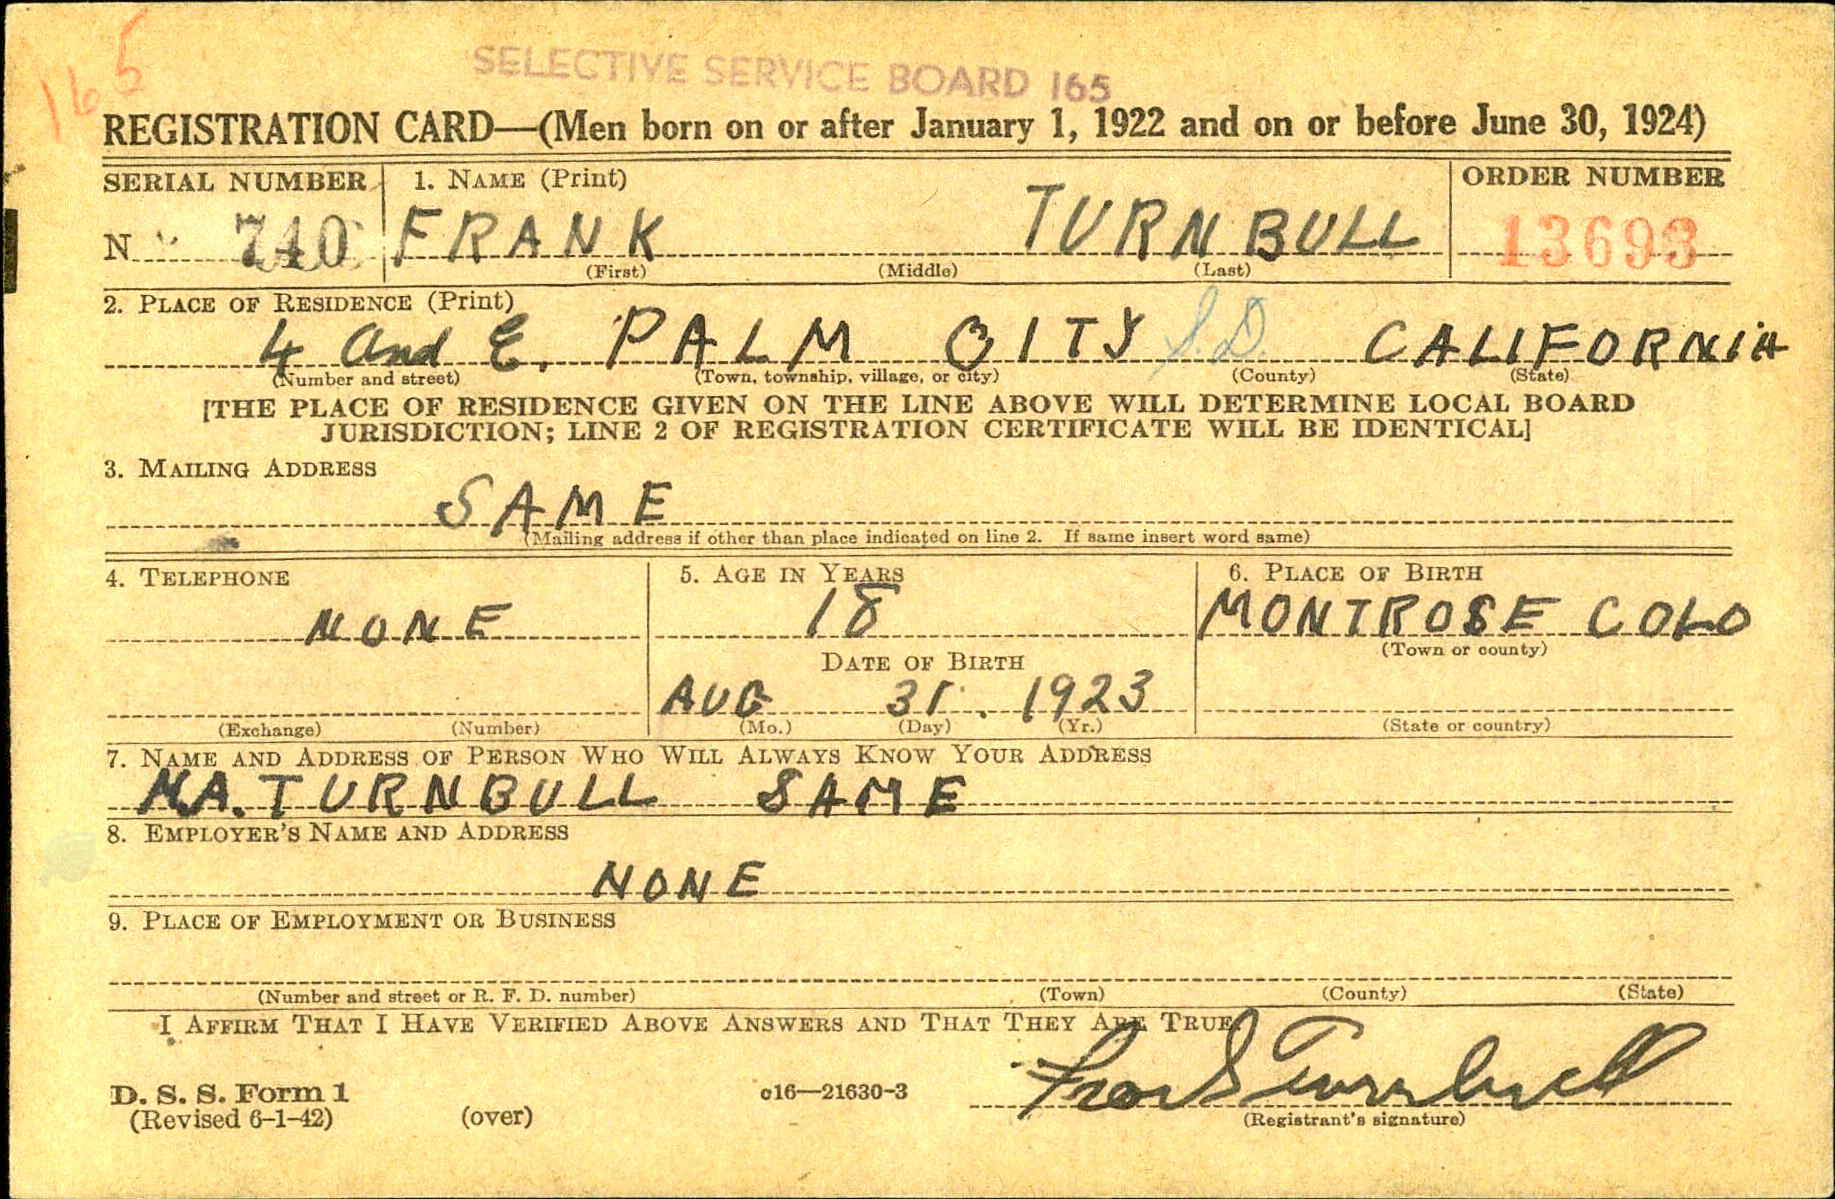 165
SELECTIVE SERVICE BOARD 165
REGISTRATION CARD—(Men born on or after January 1, 1922 and on or before June 30, 1924)
SERIAL NUMBER 1. NAME (Print) ORDER NUMBER
N 740 FRANK TURNBULL 13693
(First) (Middle) (Last)
2. PLACE OF RESIDENCE (Print)
4 and E. PALM CITY S.D. CALIFORNIA
(Number and street) (Town, township, village, or city) (County) (State)
[THE PLACE OF RESIDENCE GIVEN ON THE LINE ABOVE WILL DETERMINE LOCAL BOARD
JURISDICTION; LINE 2 OF REGISTRATION CERTIFICATE WILL BE IDENTICAL]
3. MAILING ADDRESS
SAME
(Mailing address if other than place indicated on line 2. If same insert word same)
4. TELEPHONE 5. AGE IN YEARS 6. PLACE OF BIRTH
NONE 18 MONTROSE COLO
(Town or county)
DATE OF BIRTH
AUG 31. 1923
(Exchange) (Number) (Mo.) (Day) (Yr.) (State or country)
7. NAME AND ADDRESS OF PERSON WHO WILL ALWAYS KNOW YOUR ADDRESS
M.A. TURNBULL SAME
8. EMPLOYER'S NAME AND ADDRESS
NONE
9. PLACE OF EMPLOYMENT OR BUSINESS
(Number and street or R. F. D. number) (Town) (County) (State)
I AFFIRM THAT I HAVE VERIFIED ABOVE ANSWERS AND THAT THEY ARE TRUE
D. S. S. Form 1 c16—21630-3 Frank Turnbull
(Revised 6-1-42) (over) (Registrant's signature)